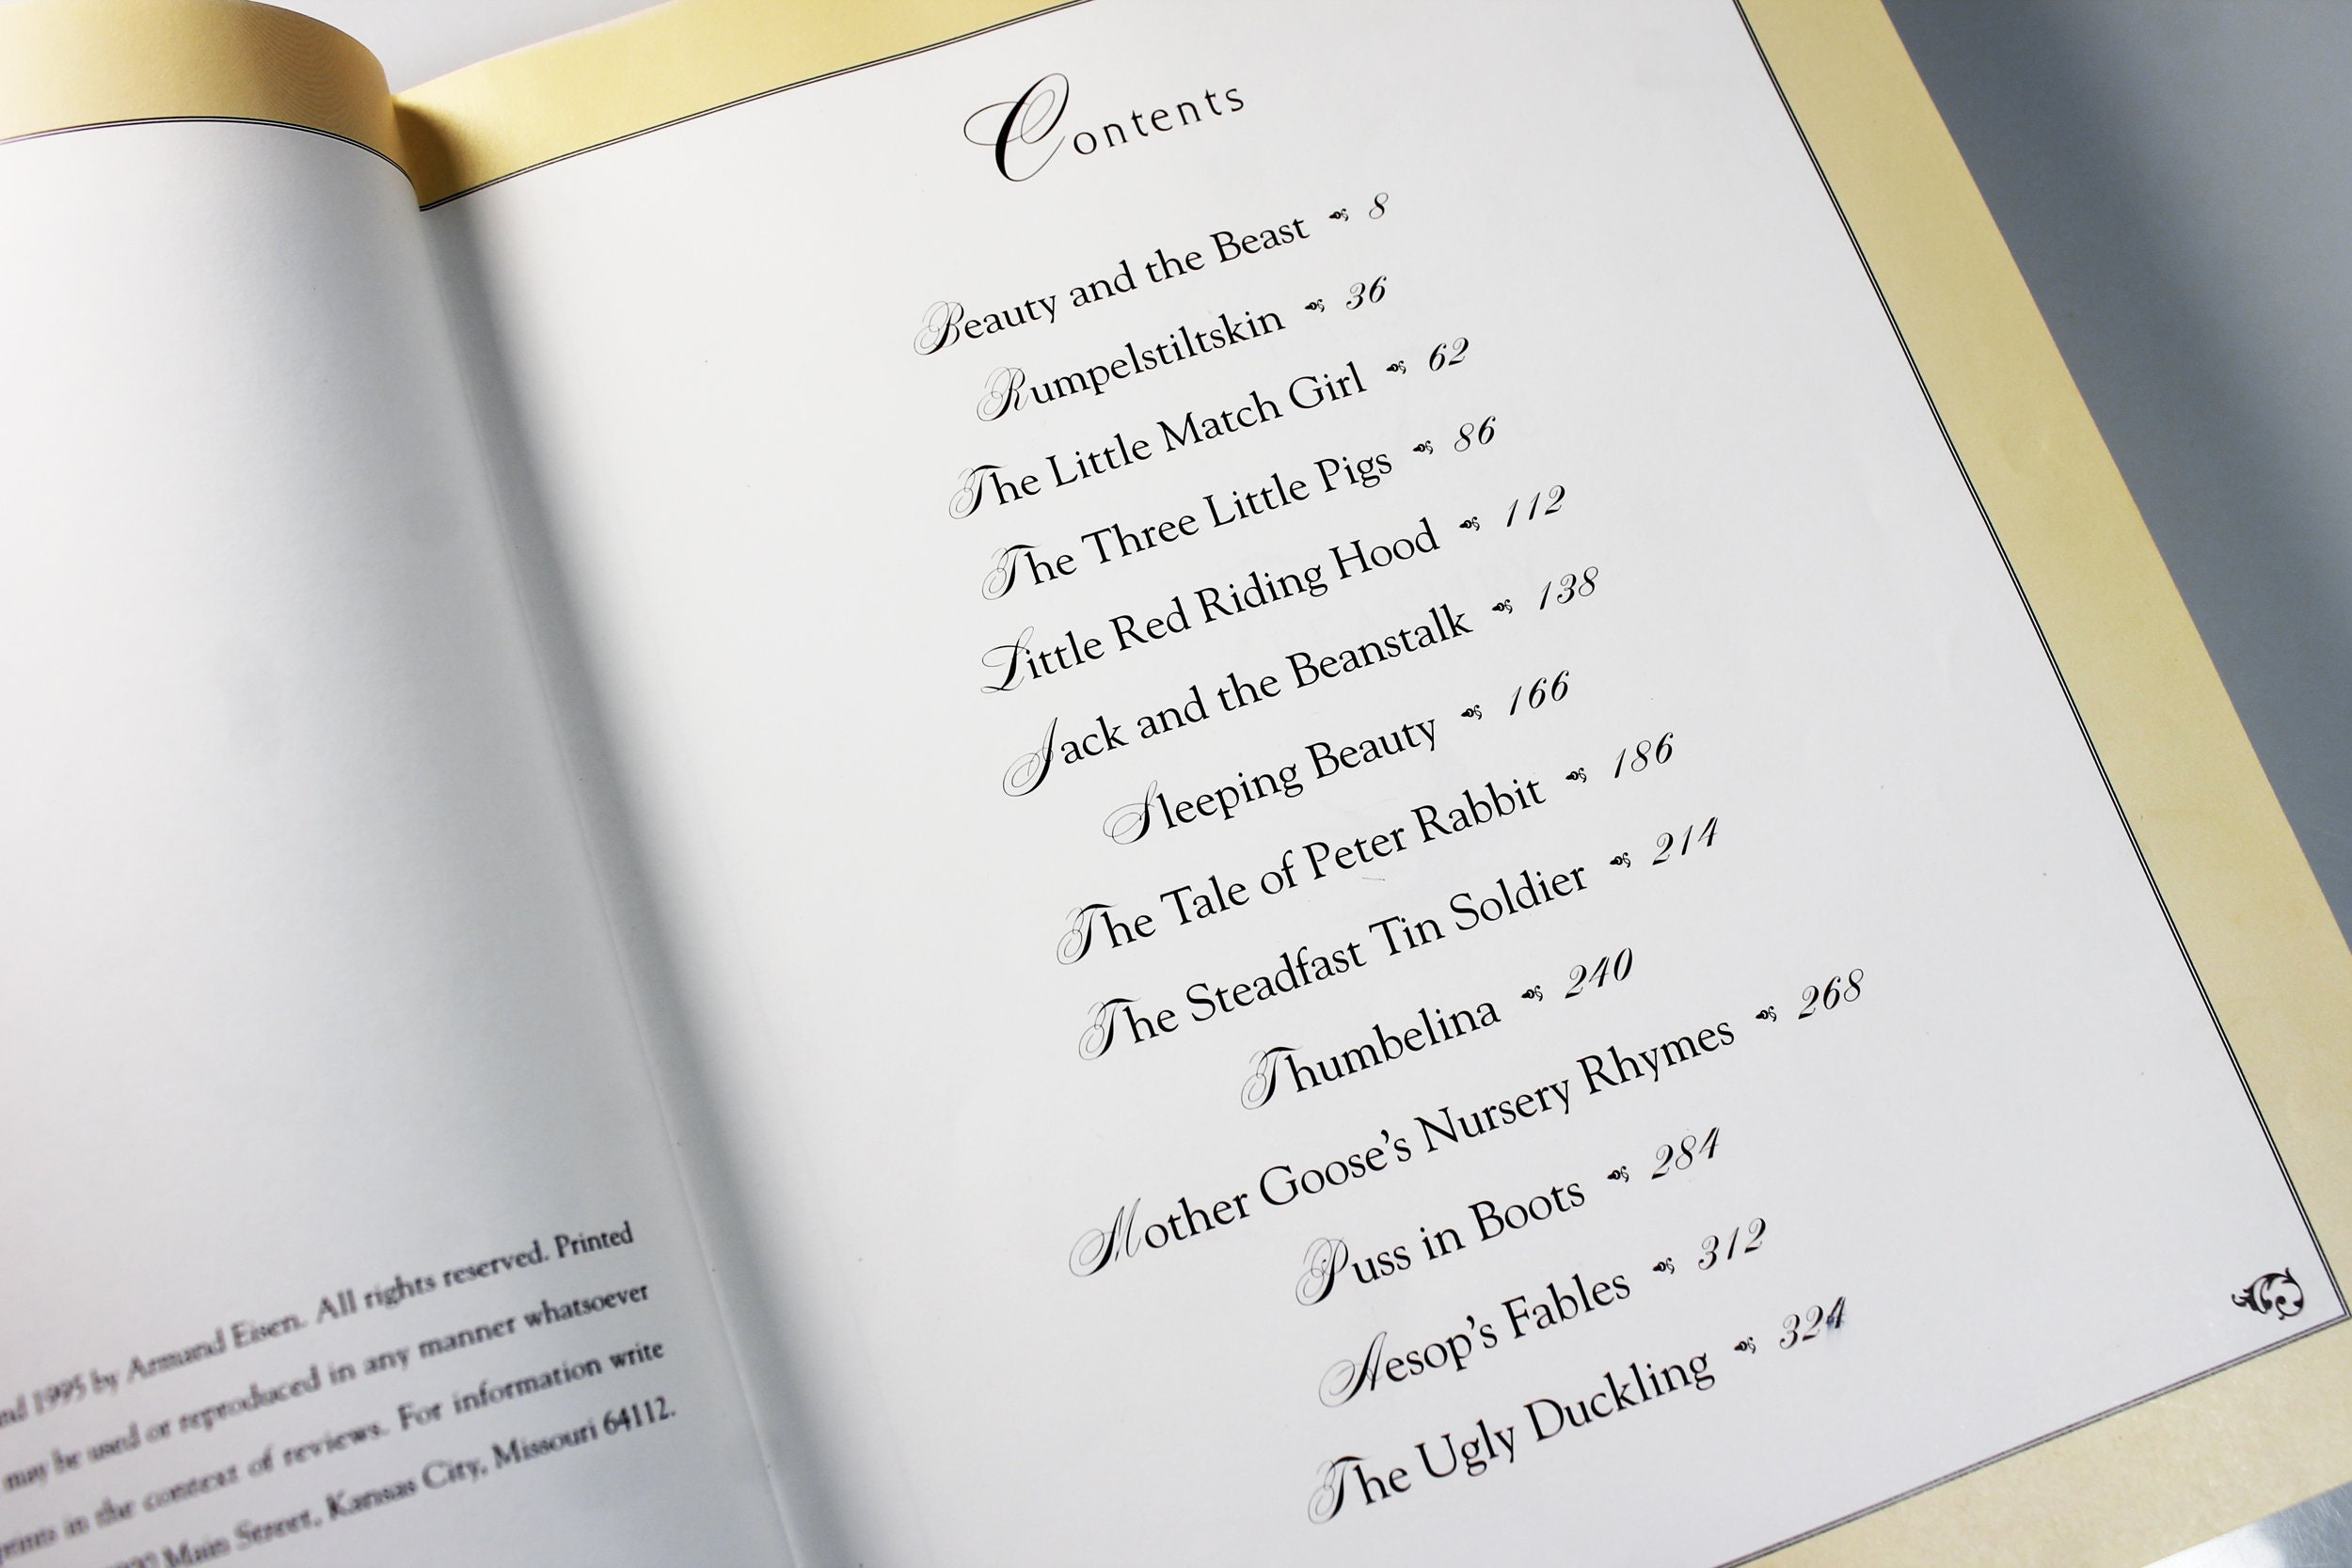 nd 1995 by Armand Eisen. All rights reserved. Printed
may be used or reproduced in any manner whatsoever
in the context of reviews. For information write
Main Street, Kansas City, Missouri 64112.
Contents
Beauty and the Beast 8
Rumpelstiltskin 36
The Little Match Girl 62
The Three Little Pigs 86
Little Red Riding Hood 112
Jack and the Beanstalk 138
Sleeping Beauty 166
The Tale of Peter Rabbit 186
The Steadfast Tin Soldier 214
Thumbelina 240
Mother Goose's Nursery Rhymes 268
Puss in Boots 284
Aesop's Fables 312
The Ugly Duckling 324